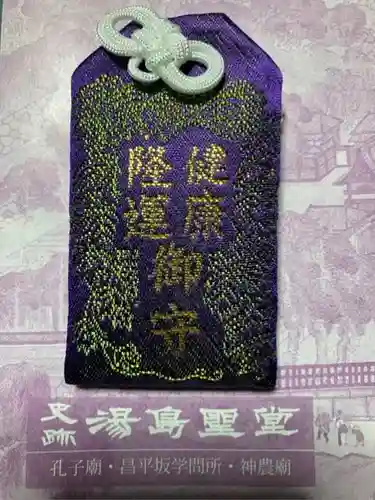 健康
隆運
御守
史跡 湯島聖堂
孔子廟・昌平坂学問所・神農廟